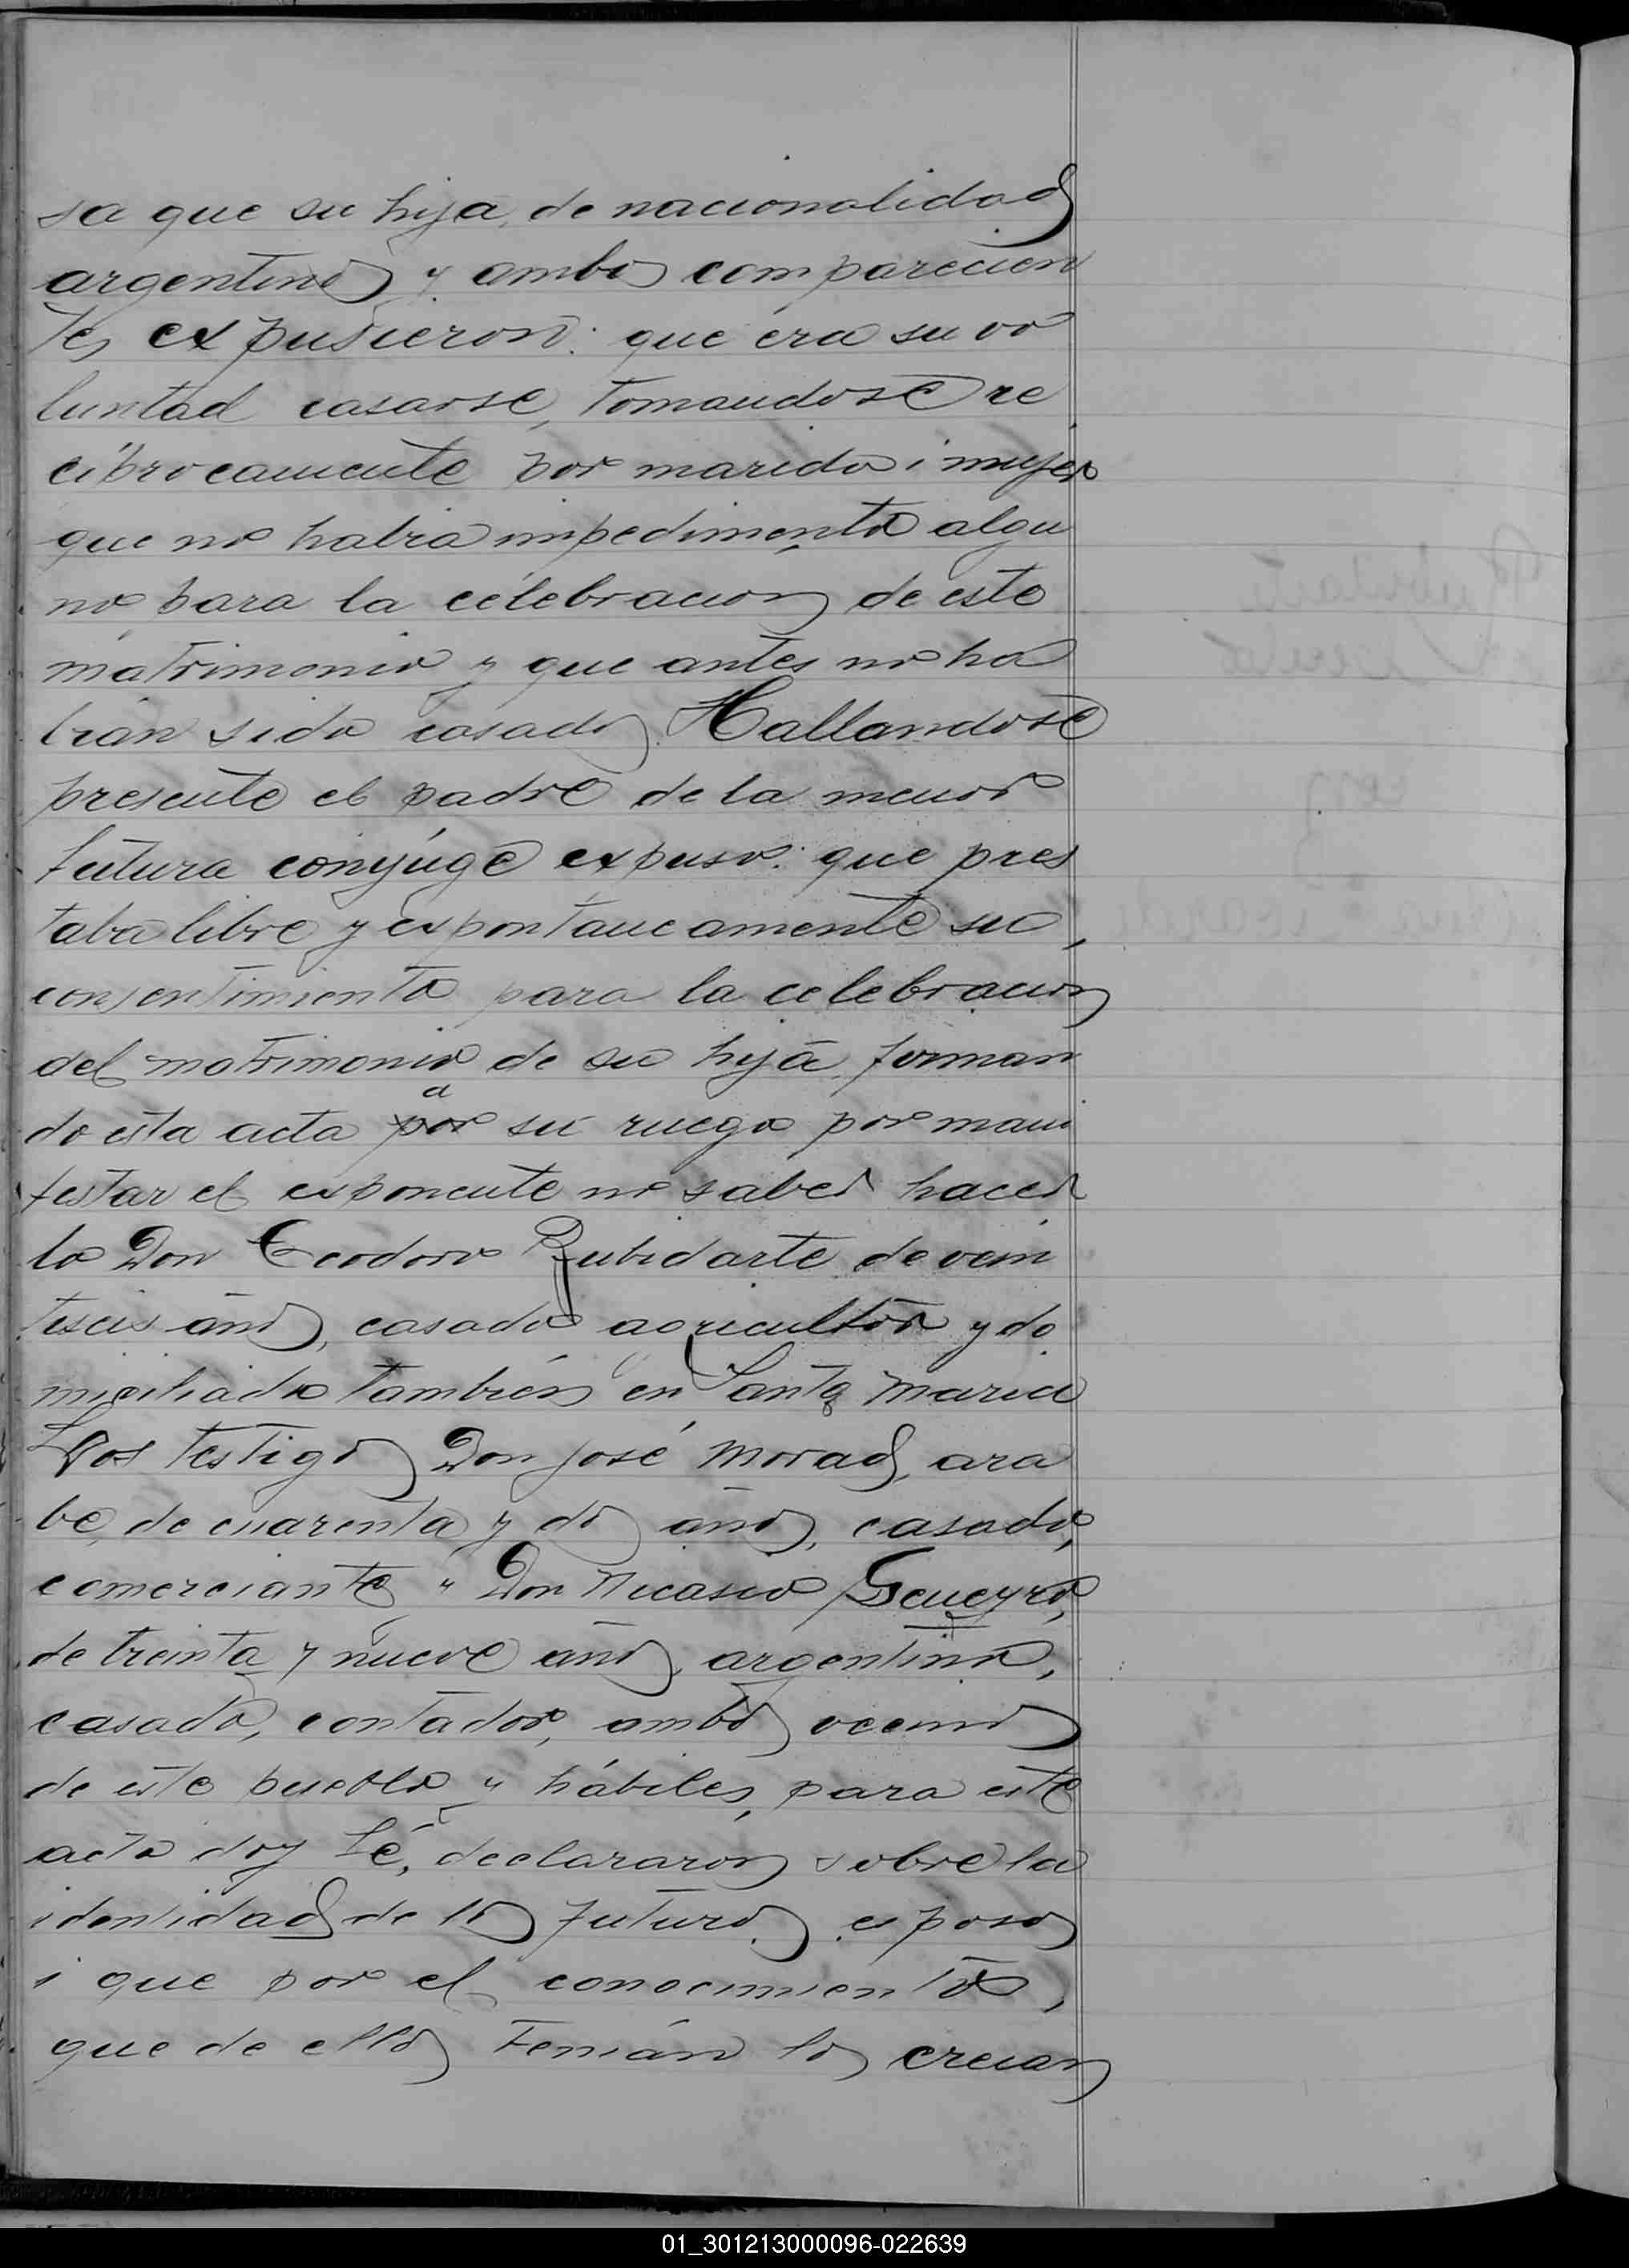 sa que su hija, de nacionalidad
argentinos y ambos comparecien
tes expusieron: que era su vo
luntad casarse, tomandose re
ciprocamente por marido i mujer
que no habia impedimento algu
no para la celebracion de este
matrimonio y que antes no ha
bian sido casados. Hallandose
presente el padre de la menor
futura conyúge expuso: que pres
taba libre y expontaneamente su
consentimiento para la celebracion
del matrimonio de su hija, firman
do esta acta por a su ruego por mani
festar el exponente no saber hacer
lo Don Teodoro Zubidarte de vein
tiseis años, casado agricultor y do
miciliado tambien en Santa Maria
Los testigos Don José Morad, ara
be, de cuarenta y dos años, casado,
comerciante y Don Nicasio
de treinta y nueve años, argentino,
casado, contador, ambos vecinos
de este pueblo y hábiles, para este
acto doy fé, declararon sobre la
identidad de los futuros esposos
i que por el conocimiento,
que de ellos tenian los creian
01_301213000096-022639